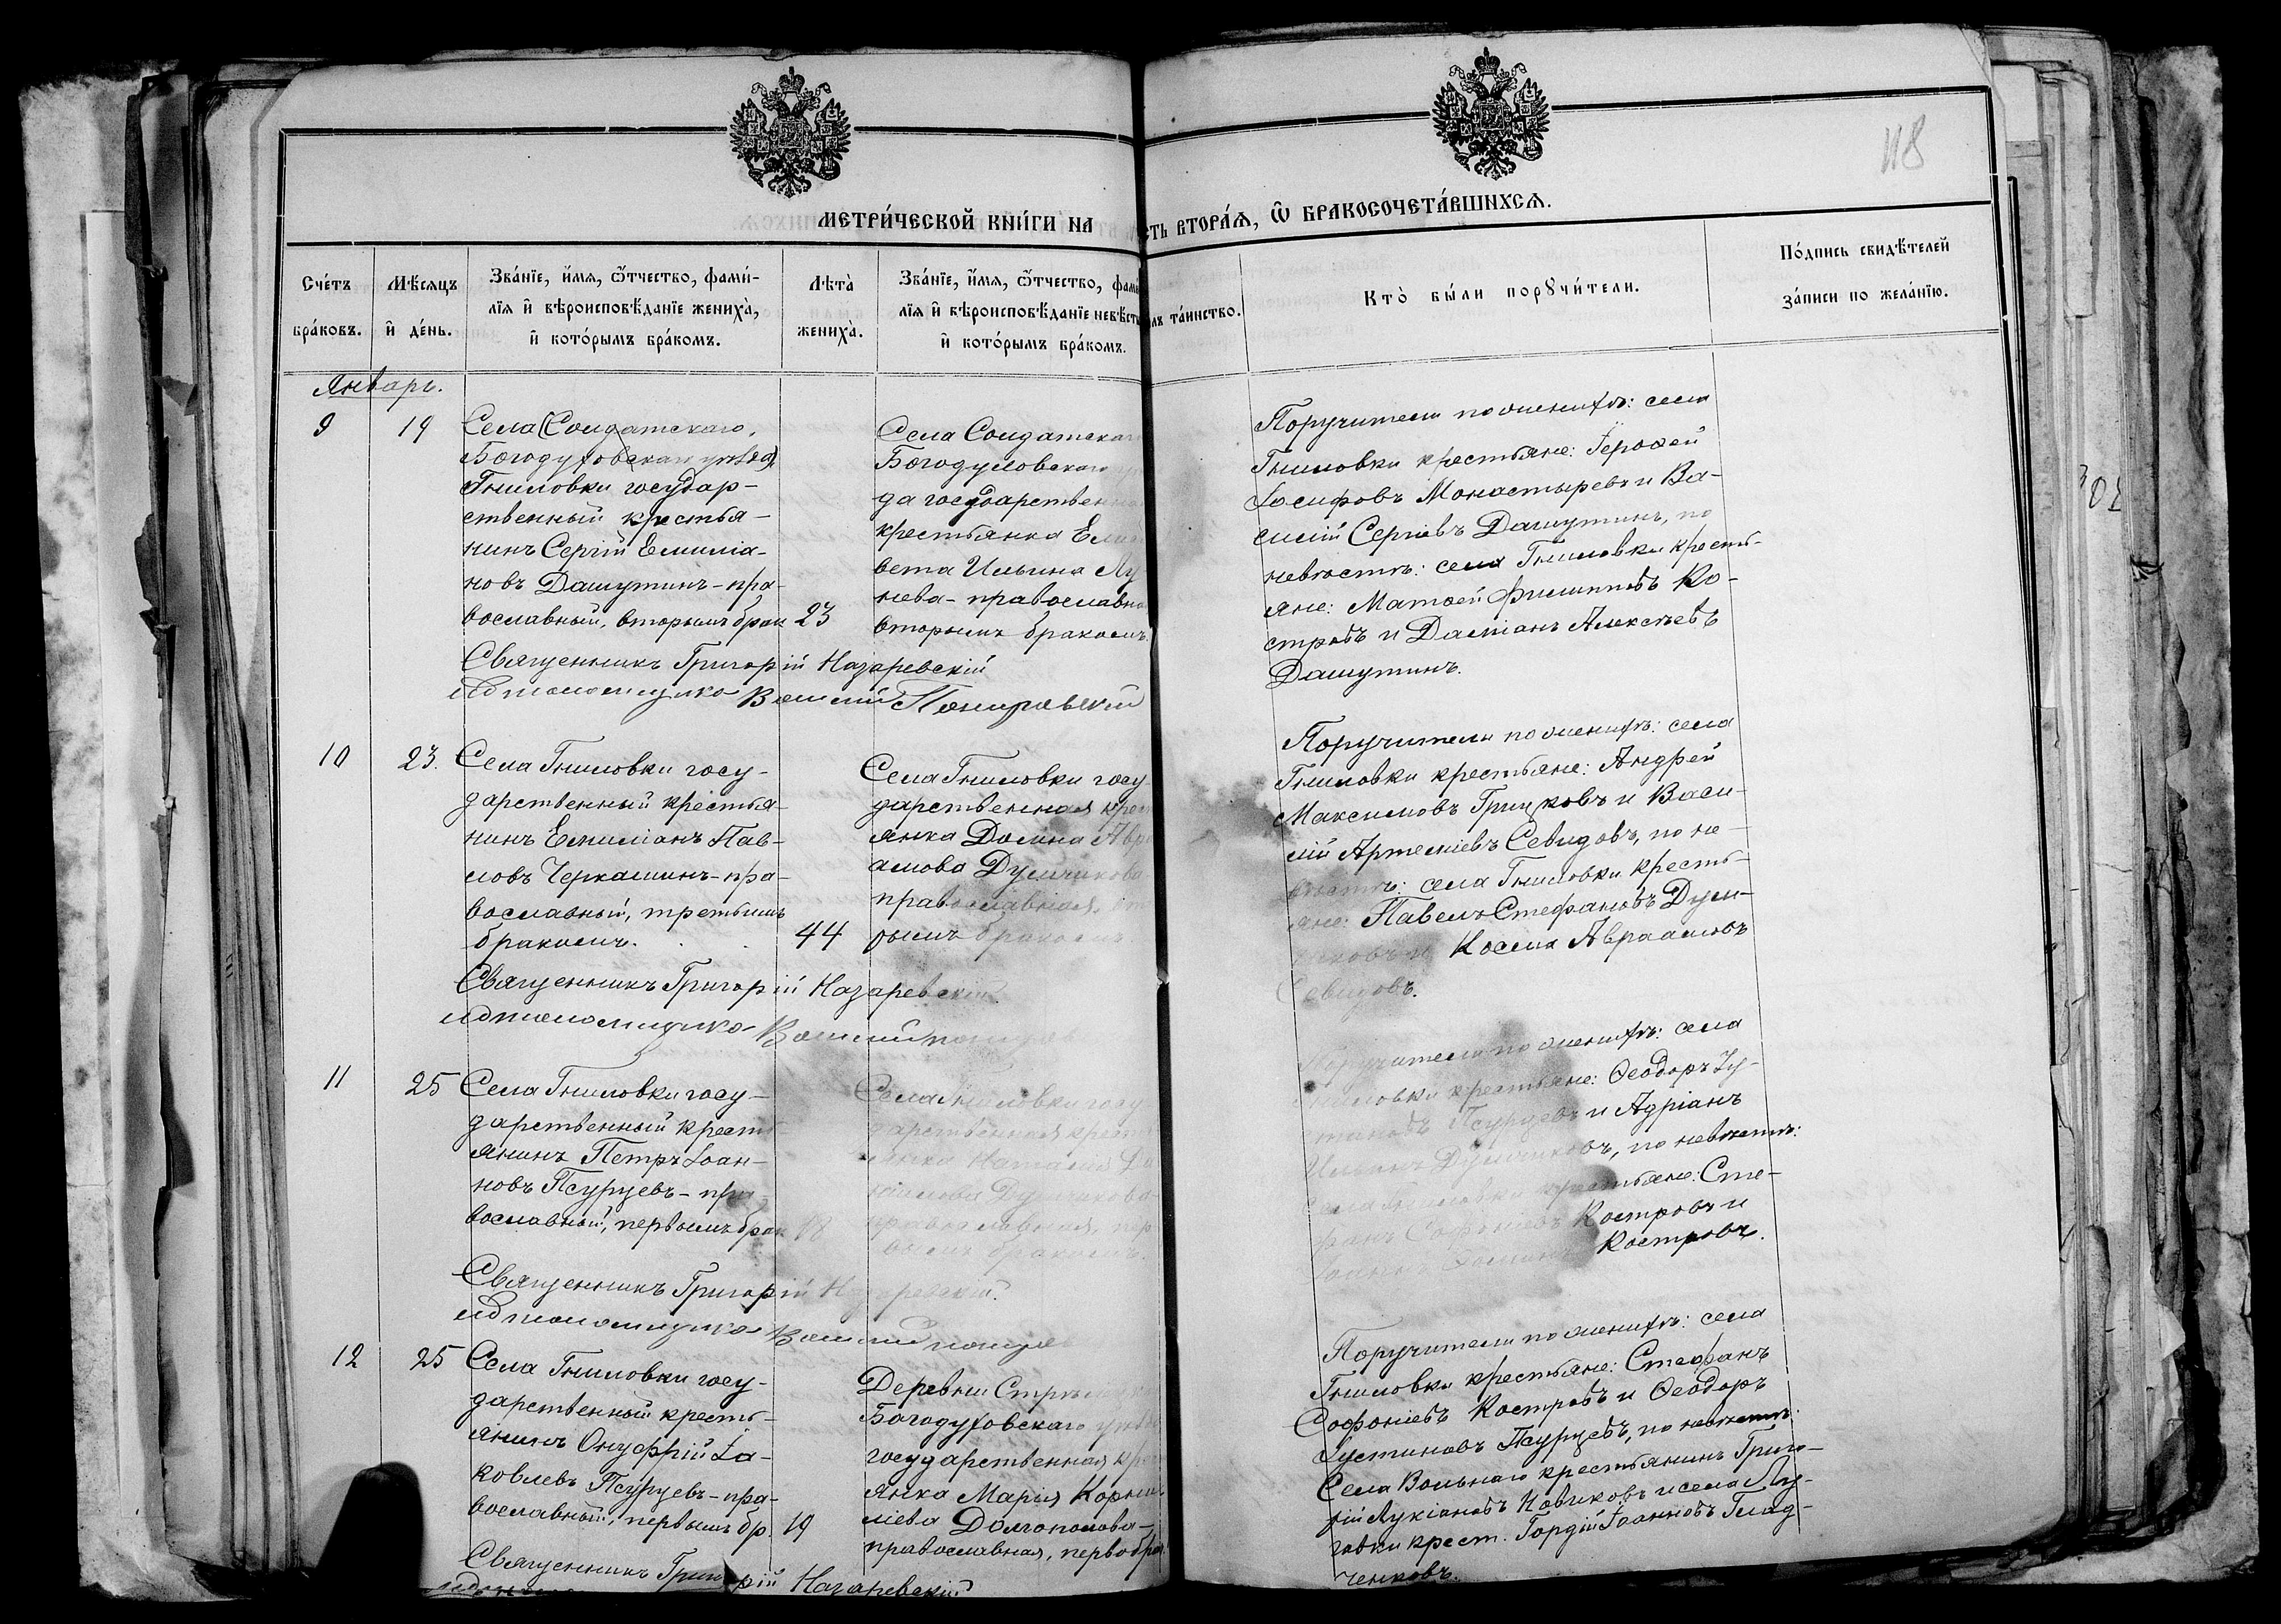 118
МЕТРИ́ЧЕСКОЙ КНИ́ГИ НА
СТЬ ВТОРА́Я, Ѿ БРАКОСОЧЕТА́ВШИХСЯ.
Сче́тъ
бра́ковъ.
Мѣ́сяцъ
и҆ де́нь.
Зва́нїе, и҆́мя, ѻ҆́тчество, фами́-
лїя и҆ вѣроисповѣ́данїе жениха̀,
и҆ кото́рымъ бра́комъ.
Лѣта̀
жениха̀.
Зва́нїе, и҆́мя, ѻ҆́тчество, фам
лїя и҆ вѣроисповѣ́данїе невѣст
и҆ кото́рымъ бра́комъ.
лъ та́инство.
Кто̀ бы́ли порꙋчи́тели.
По́дпись свидѣ́телей
за́писи по жела́нїю.
Январь.
9
19
Села (Солдатскаго,
Богодуховскаго уѣзда)
Гниловки государ-
ственный крестья-
нинъ Сергій Емилiа-
новъ Дашутинъ - пра-
вославный, вторымъ брак
23
Села Солдатскаг
Богодуховскаго
да государственн
крестьянка Ели
вета Ильина Лу
нева - православна
вторымъ бракомъ.
Священникъ Григорій Назаревскій
Василій
Поручители по женихѣ: села
Гниловки крестьяне: Іерофей
Іосифовъ Монастыревъ и Ва-
силій Сергіевъ Дашутинъ, по
невѣстѣ: села Гниловки кресть-
яне: Матѳей Филипповъ Ко-
стровъ и Даміанъ Алексѣевъ
Дашутинъ.
10
23.
Села Гниловки госу-
дарственный крестья-
нинъ Емиліанъ Пав-
ловъ Черкашинъ - пра-
вославный, третьимъ
бракомъ.
44
Села Гниловки госу
дарственная крес
янка Домна Авра
амова Думчикова
православная, вто
рымъ бракомъ
Священникъ Григорій Назаревскій.
Василій
Поручители по женихѣ: села
Гниловки крестьяне: Андрей
Максимовъ Грицковъ и Васи-
лій Артеміевъ Севидовъ, по не-
вѣстѣ: села Гниловки кресть-
яне: Павелъ Стефановъ Дум-
чиковъ и Косма Авраамовъ
Севидовъ.
11
25
Села Гниловки госу-
дарственный кресть
янинъ Петръ Іоан-
новъ Псурцевъ - пра-
вославный, первымъ брак
18
Села Гниловки госу
дарственная крест
янка Наталія Да
ніилова Думчикова-
православная, пер
вымъ бракомъ.
Священникъ Григорій Назаревскій.
Василій
Поручители по женихѣ: села
Гниловки крестьяне: Ѳеодоръ Іу-
стиновъ Псурцевъ и Адріанъ
Ильинъ Думчиковъ, по невѣстѣ:
села Гниловки крестьяне: Сте-
фанъ Софоніевъ Костровъ и
Костровъ.
12
25
Села Гниловки госу-
дарственный кресть-
янинъ Онуфрій Іа-
ковлевъ Псурцевъ - пра-
вославный, первымъ бр.
19
Деревни
Богодуховскаго уѣз
государственная кре
янка Марія Корни
ліева Долгополова -
православная, первобра
Священникъ Григорій Назаревскій
Поручители по женихѣ: села
Гниловки крестьяне: Стефанъ
Софоніевъ Костровъ и Ѳеодоръ
Іустиновъ Псурцевъ, по невѣстѣ:
села Вольнаго крестьянинъ Григо-
рій Лукіановъ Новиковъ и села Лу-
товки крест. Гордій Іоанновъ Глад-
ченковъ.